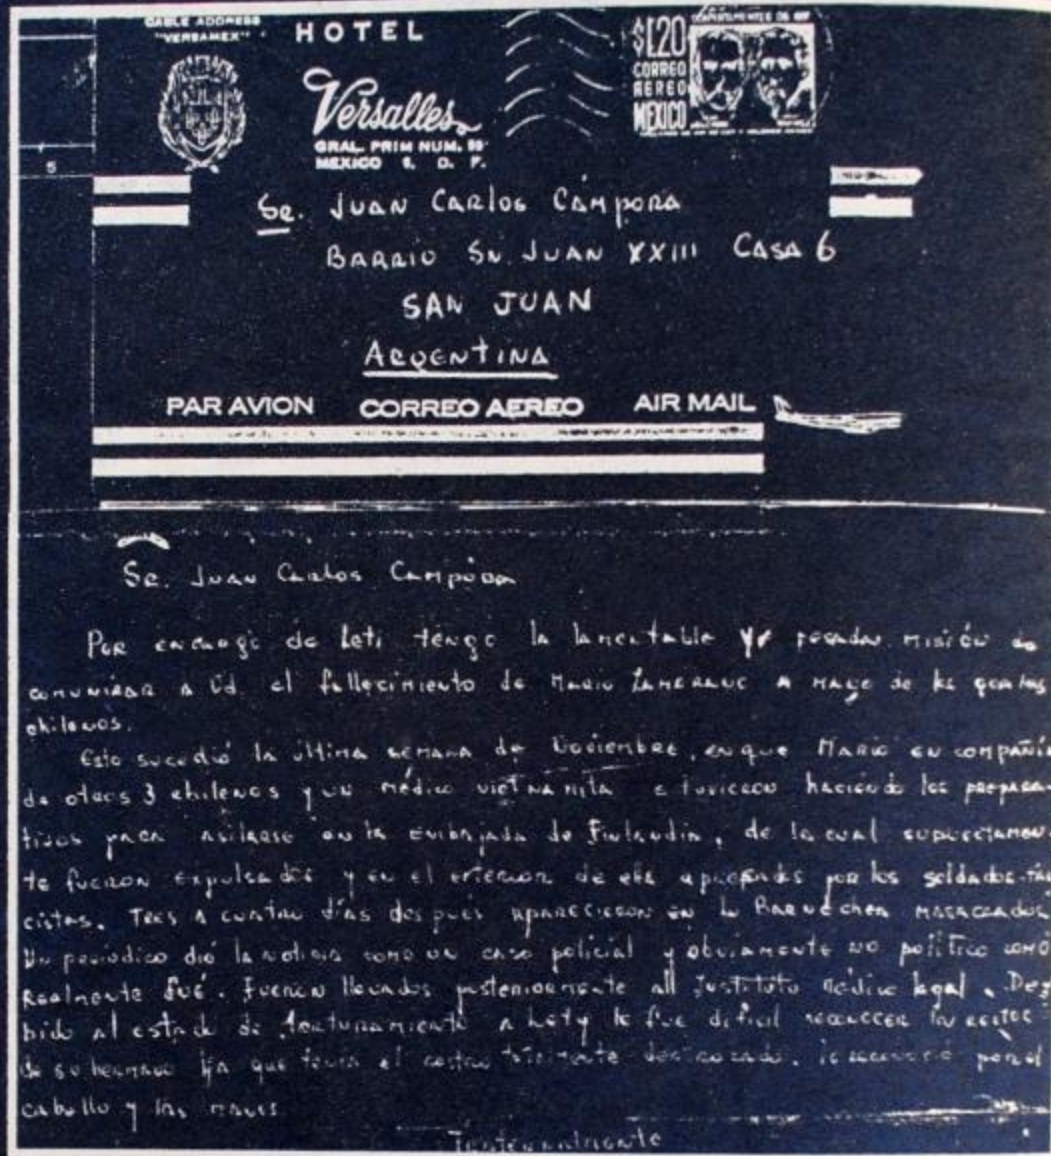 CABLE ADDRESS
"VERSAMEX"
HOTEL
Versalles
GRAL. PRIM NUM. 59
MEXICO 6, D. F.
$1.20
CORREO
AEREO
MEXICO
5
Sr. JUAN CARLOS CÁMPORA
BARRIO SN. JUAN XXIII CASA 6
SAN JUAN
ARGENTINA
PAR AVION CORREO AEREO AIR MAIL
Sr. Juan Carlos Campora
Por encargo de Leti tengo la lamentable y pesada misión de
comunicar a Ud. el fallecimiento de Mario a mano de los
chilenos.
Esto sucedió la última semana de Noviembre, en que Mario en compañía
de otros 3 chilenos y un médico vietnamita estuvieron haciendo los prepara-
tivos para asilarse en la embajada de Finlandia, de la cual supuestamen-
te fueron expulsados y en el exterior de ella apresados por los soldados fas-
cistas. Tres a cuatro días después aparecieron en Lo Barnechea masacrados
Un periódico dió la noticia como un caso policial y obviamente no político como
realmente fué. Fueron llevados posteriormente all Instituto médico legal. De
bido al estado de torturamiento a Lety le fue dificil reconocer los restos
de su hermano ya que tenía el rostro totalmente destrozado. lo reconoció por el
cabello y las manos
Fraternalmente